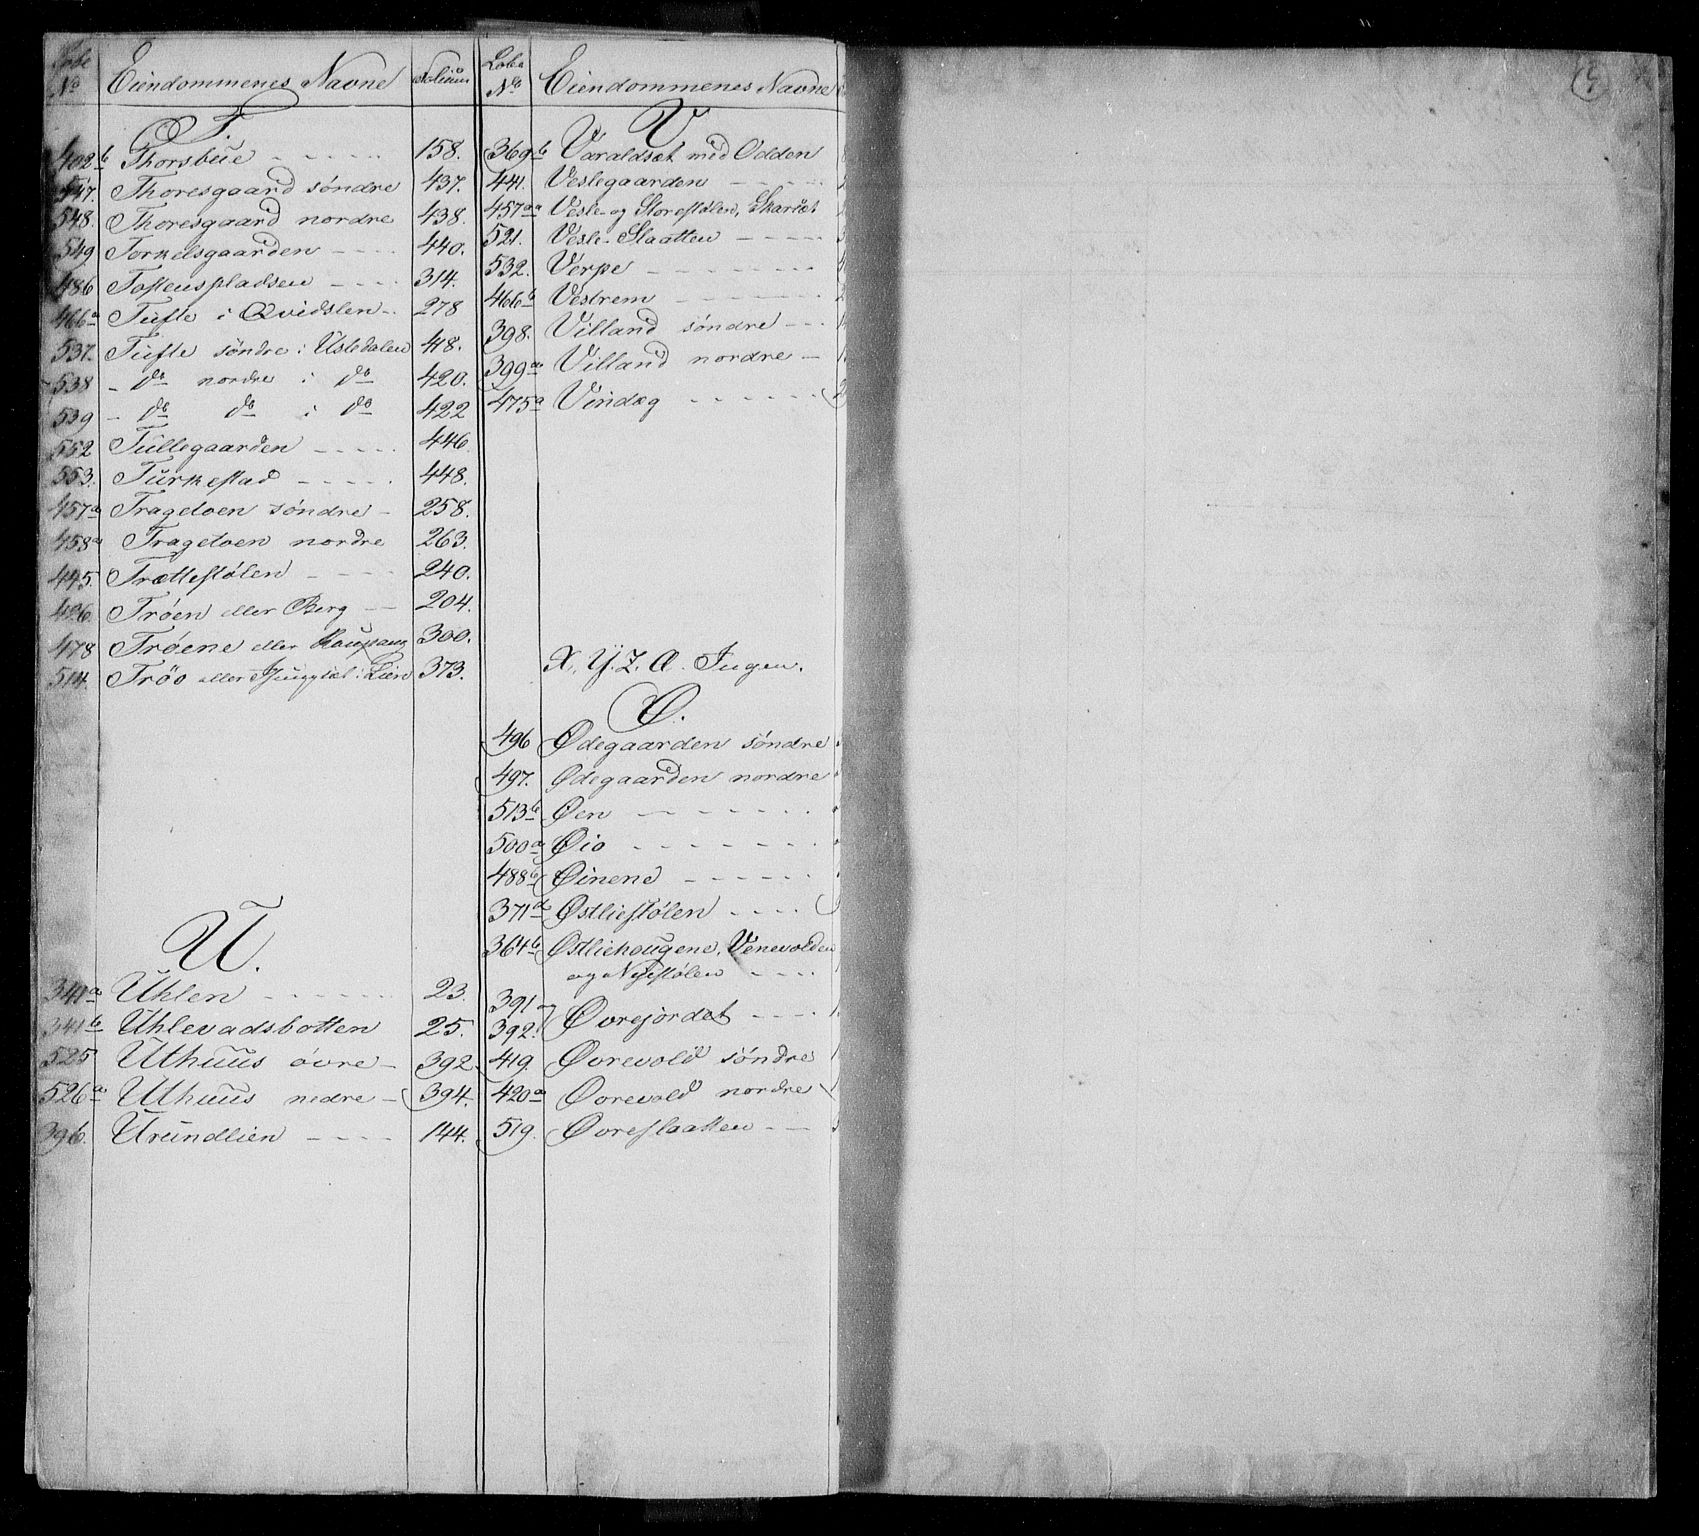 Løbe No Eiendommenes Navne Folium
T.
402b Thorsbue - - - - 158.
547. Thoresgaard søndre 437.
548. Thoresgaard nordre 438.
549 Torkelsgaarden - - - 440.
486 Tostenspladsen - - - 314.
466a Tufte i Qvidslen - 278
537. Tufte søndre i Ustedalen 418.
538 - do nordre i do 420.
539 - do do i do 422
552 Tullegaarden - - - - 446.
553. Turkestad - - - - 448.
457a Tragetoen søndre - 258.
458a Tragetoen nordre 263.
445. Trættestølen - - - 240.
426. Trøen eller Berg - - 204.
478 Trøene eller Kaupang 300.
514. Trøo eller i Lien 373.
U.
341a Uhlen - - - - - 23.
341b Uhlevadsbotten 25.
525 Uthuus øvre - 392
526a Uthuus nedre - 394.
396. Urundlien - - - - 144.
Løbe No Eiendommenes Navne
V
369b Varaldset med Odden
441. Veslegaarden - - - -
457aa Vesle- og Storestølen, Skarset
521. Vesle-Slaatten - - - -
532. Verpe - - - - - -
466b Vestrem - - - - -
398. Villand søndre - - -
399a Villand nordre -
475a Vindæg - - - - -
X, Y. Z. Æ. Ingen.
Ø.
496 Ødegaarden søndre
497. Ødegaarden nordre
513b Øen - - - - - -
500a Øio - - - - - -
488b Øinene - - - - -
371a Østliestølen - - - -
364b Østliehougene, Venevolden
og Nystølen - - - -
391 og
392. Øvrejordet - - - -
419. Øvrevold søndre
420a Øvrevold nordre
519. Øvreslaatten - -